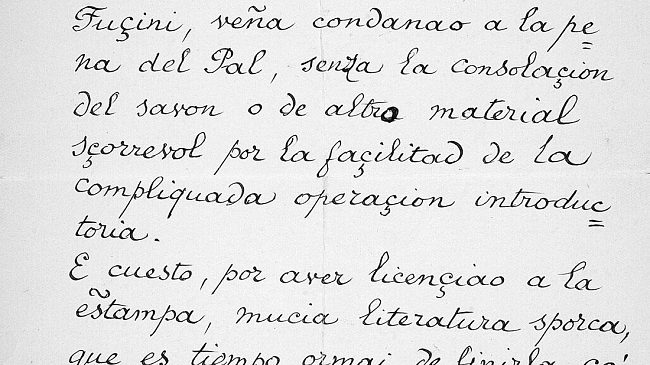 Fuçini, veña condanao a la pe=
na del Pal, senza la consolaçion
del savon o de altro material
sçorrevol por la façilitad de la
compliquada operaçion introduc=
toria.
E cuesto, por aver licençiao a la
estampa, mucia literatura sporca,
que es tiempo ormai de finirla, co'